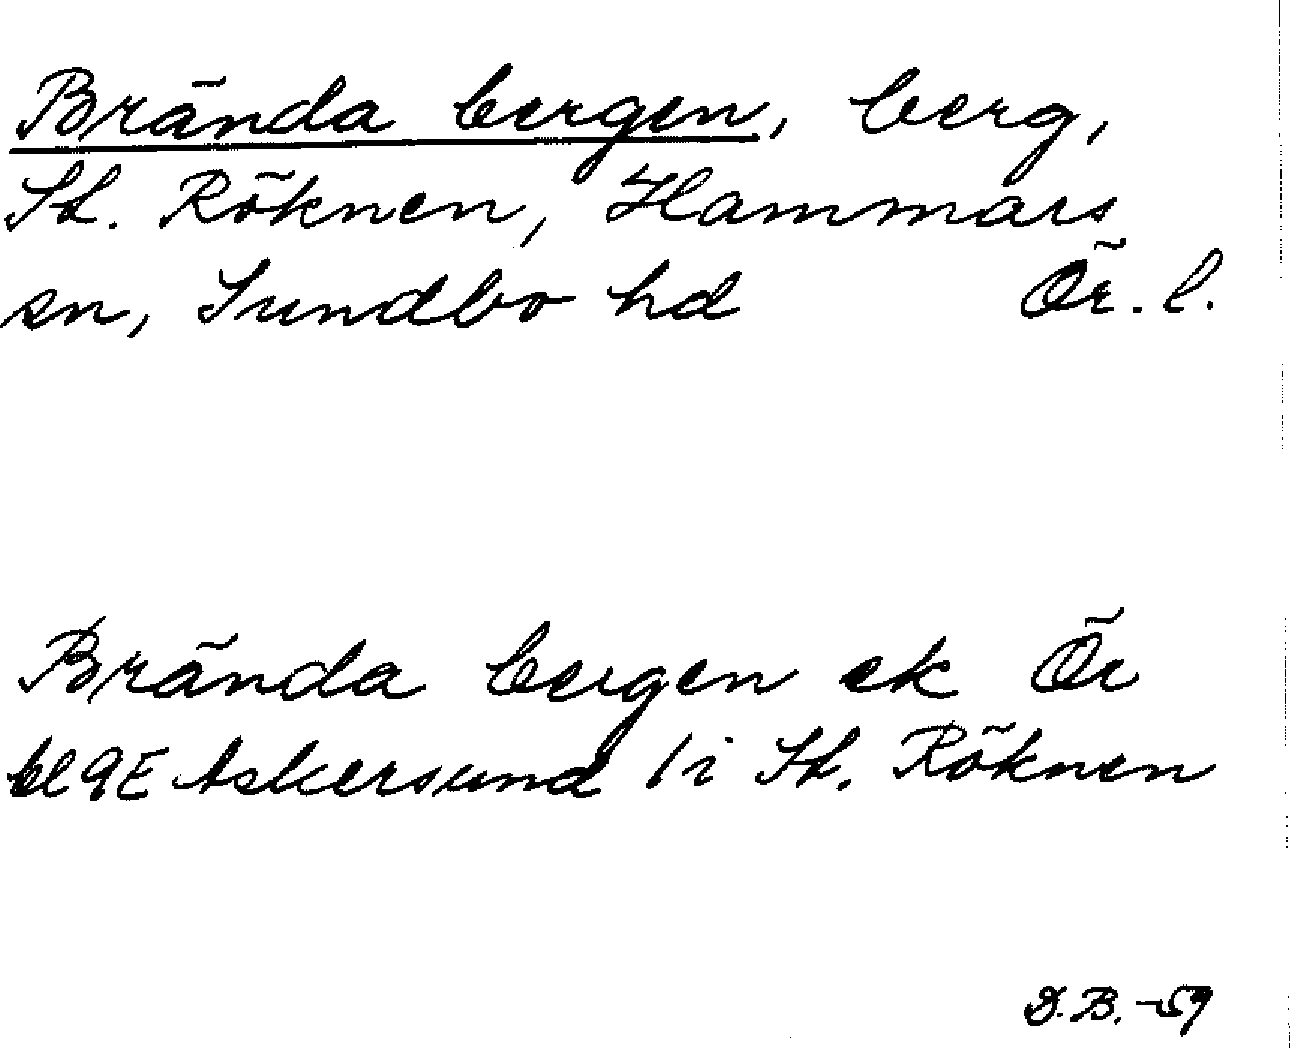 Brända bergen, berg,
St. Röknen, Hammars
sn, Sundbo hd Ör. l.
Brända bergen ek Ör
bl 9E Askersund / i St. Röknen
D.B. -59